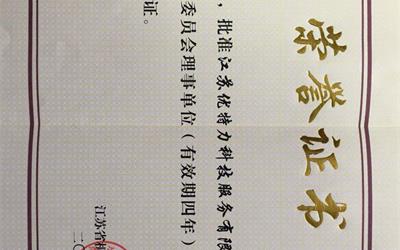 荣誉证书
，批准江苏优特力科技服务有限
委员会理事单位（有效期四年）
证。
江苏省
二〇